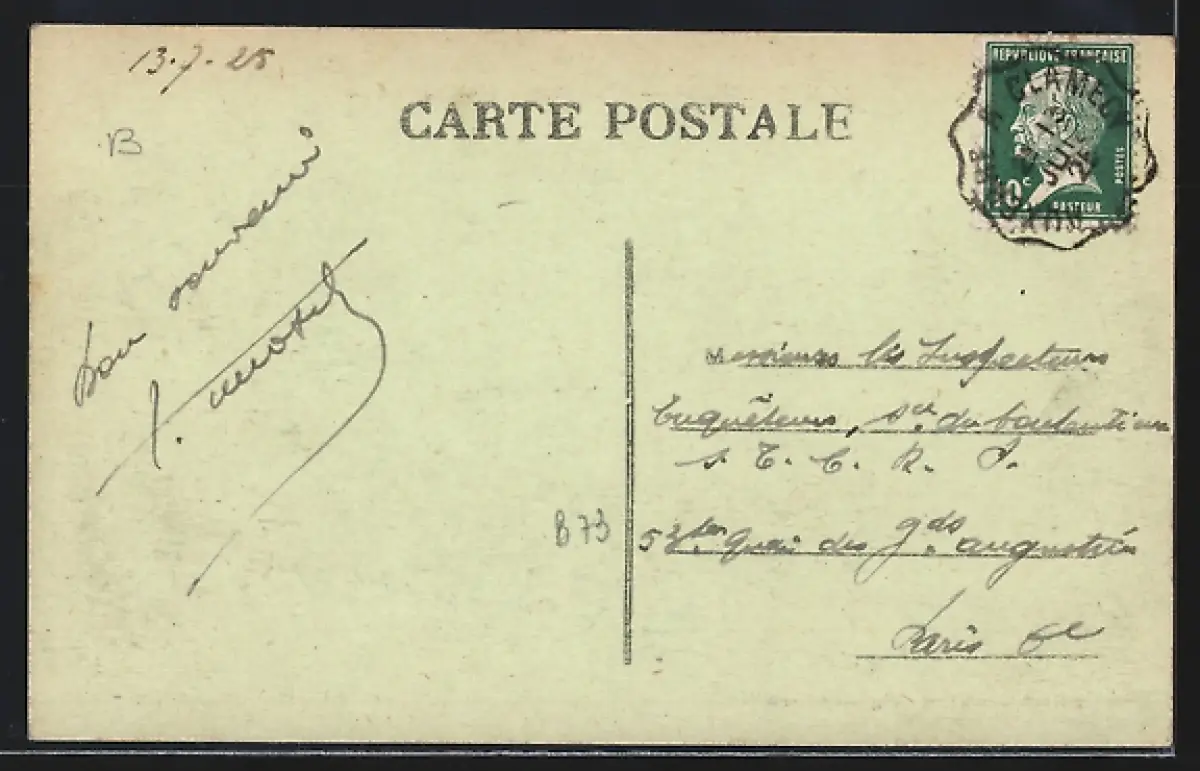 13.7.25
B
CARTE POSTALE
REPUBLIQUE FRANÇAISE
POSTES
10c
PASTEUR
CLAMECY
Bon souvenir
Messieurs les Inspecteurs
Enquêteurs, Son du Contentieux
S. T. C. R. P.
53 ter quai des gds augustins
Paris 6e
B73